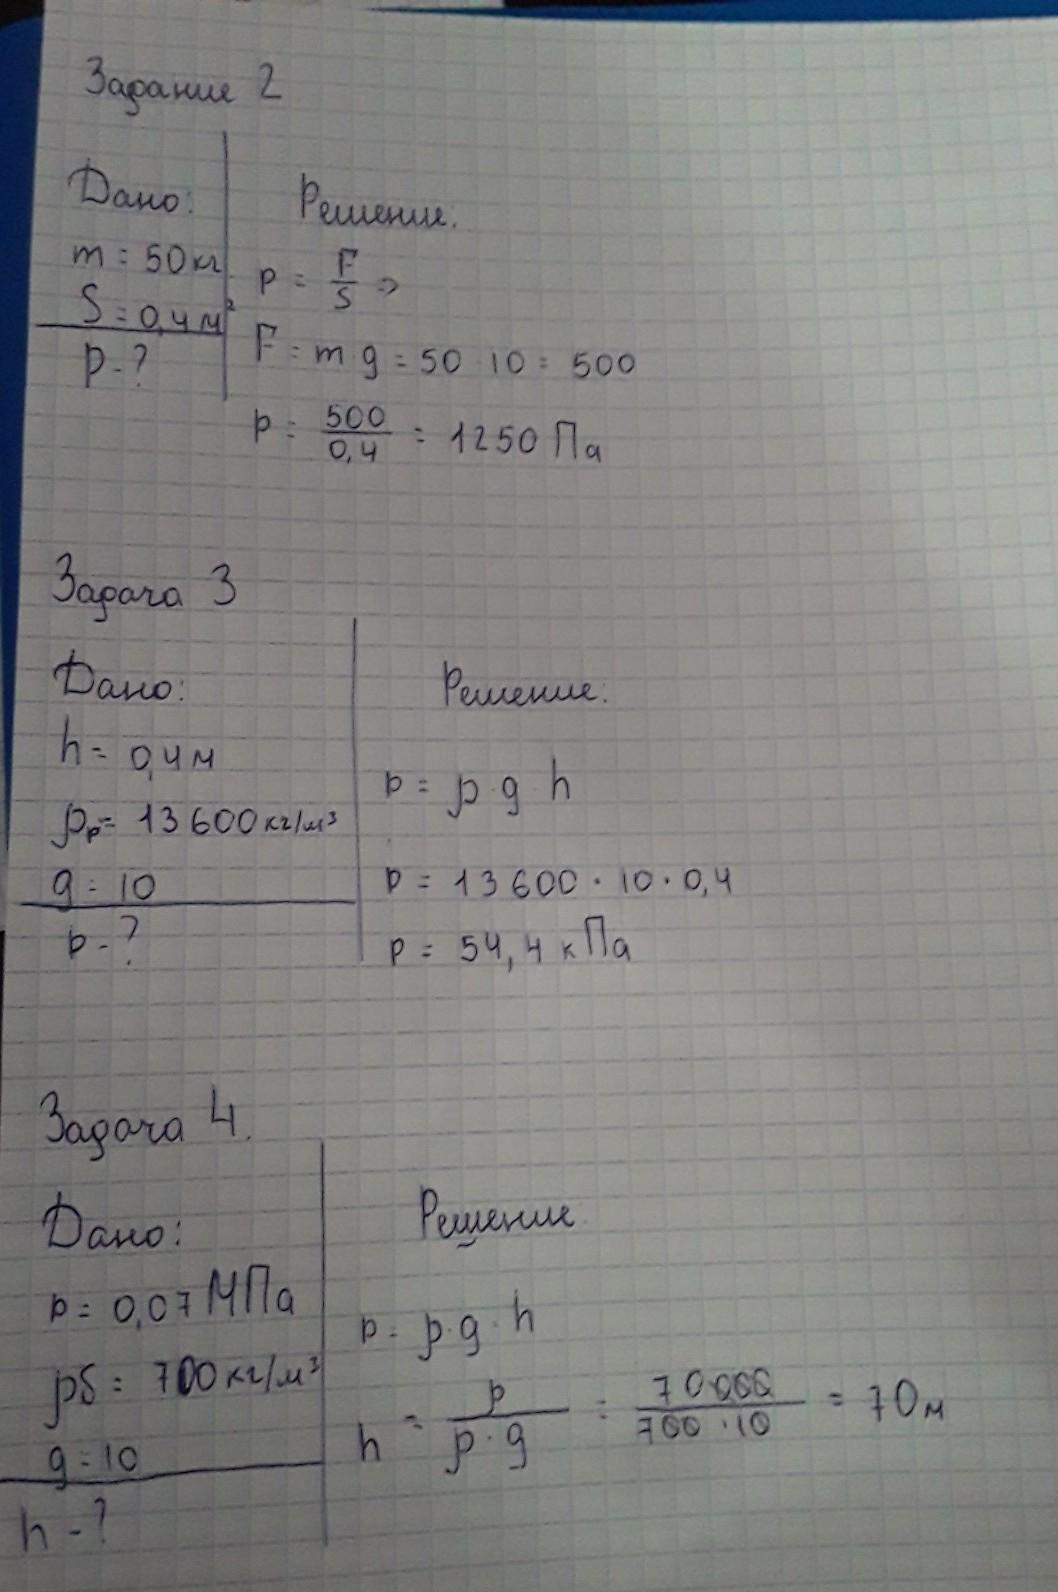 Задание 2
Дано:
m = 50кг
S = 0,4м²
p - ?
Решение:
p = F/S =>
F = m g = 50 · 10 = 500
p = 500/0,4 = 1250 Па
Задача 3
Дано:
h = 0,4м
ρр = 13600кг/м³
g = 10
p - ?
Решение:
p = ρ · g · h
p = 13600 · 10 · 0,4
p = 54,4 кПа
Задача 4.
Дано:
p = 0,07 МПа
ρб = 700кг/м³
g = 10
h - ?
Решение
p = ρ · g · h
h = p/ρ · g = 70000/700 · 10 = 70м